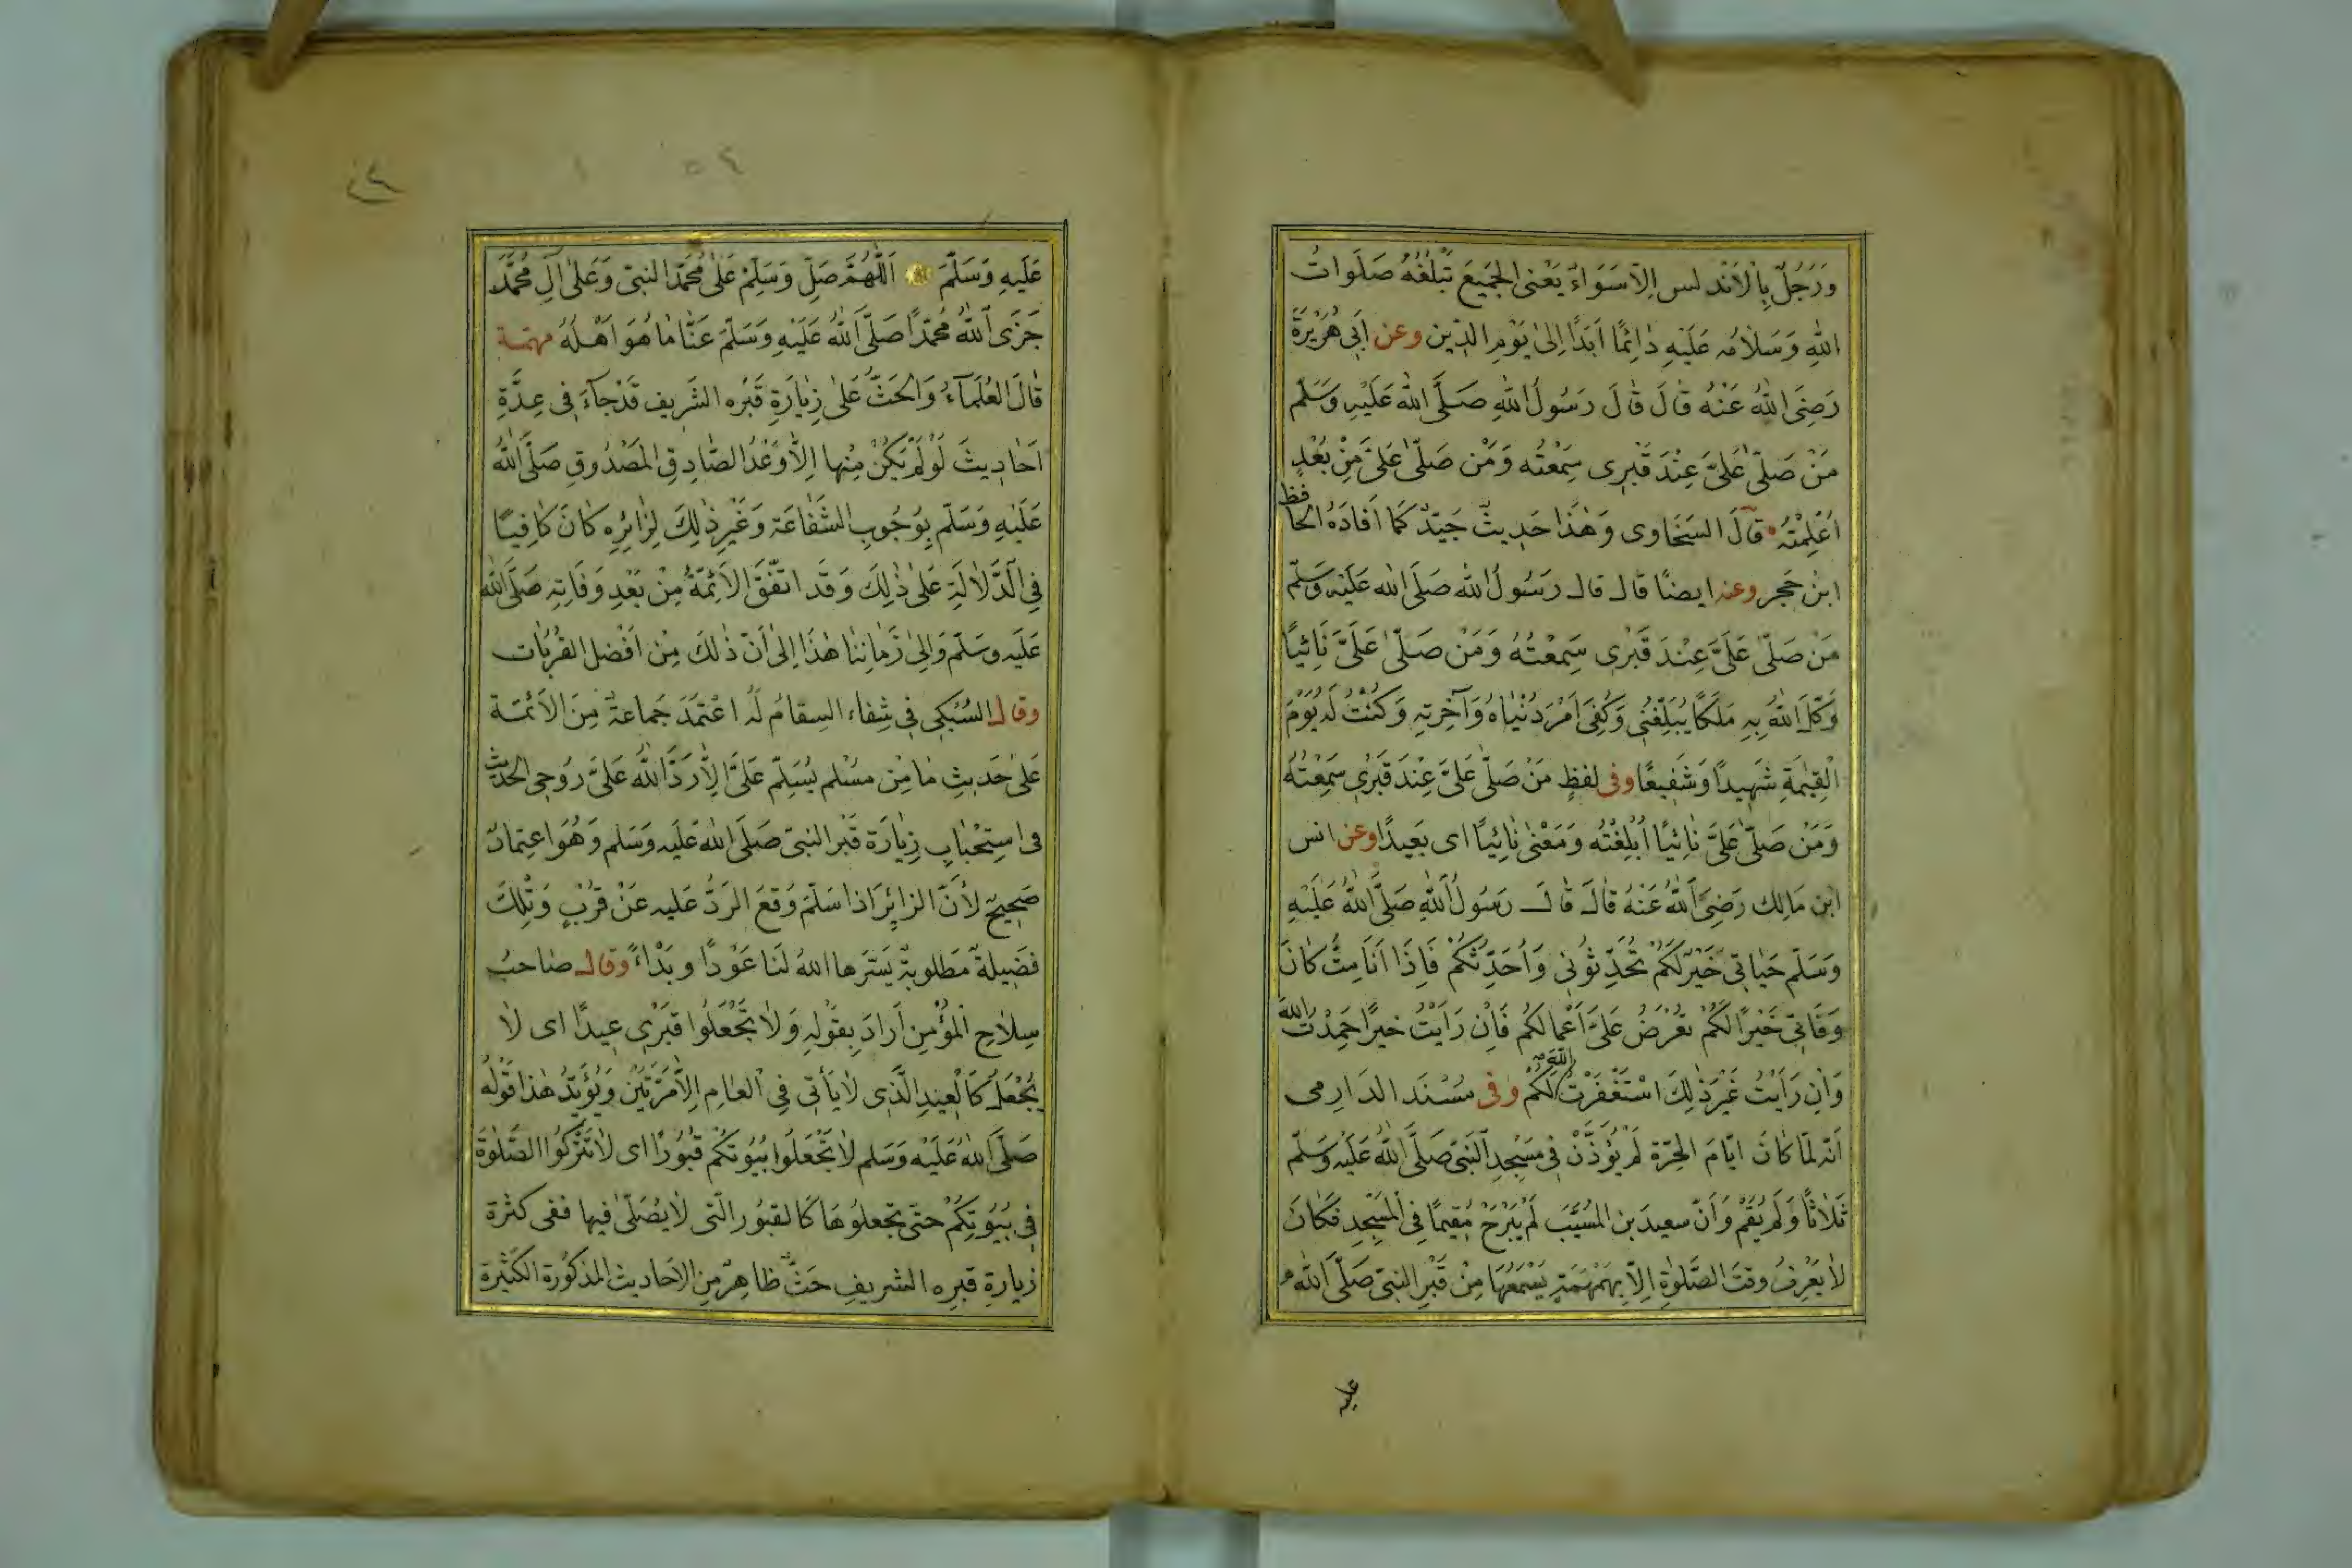 وَرَجُلٌ بِالْاَنْدلس اِلَّا سَوَاءٌ يَعْنِى الْجَمِيعَ تَبْلُغُهُ صَلَوَاتُ
اللهِ وَسَلَامُه عَلَيْهِ دَائِمًا اَبَدًا اِلىٰ يَوْمِ الدِّين وعن اَبِى هُرَيْرَةَ
رَضِىَ اللهُ عَنْهُ قَالَ قَالَ رَسُولُ اللهِ صَلَّى اللهُ عَلَيْهِ وَسَلَّم
مَنْ صَلّىٰ عَلَىَّ عِنْدَ قَبْرِى سِمَعْتُه وَمَنْ صَلّىٰ عَلَىَّ مِنْ بُعْدٍ
اُعْلِمْتُهُ قَالَ السَخَاوِى وَهٰذَا حَدِيثٌ جَيّدٌ كَمَا اَفَادَهُ الْحَافظ
ابنُ حَجر وعنه ايضًا قال قال رَسُولُ اللهِ صَلَّى الله عَلَيْه وَسَلّم
مَنْ صَلّىٰ عَلَىَّ عِنْدَ قَبْرِى سَمِعْتُهُ وَمَنْ صَلّىٰ عَلَىَّ نَائِيًا
وَكَّلَ اللهُ بِهِ مَلَكًا يُبَلِّغُنِى وَكُفِىَ اَمْرَ دُنْيَاهُ وَآخِرِتِهِ وَكُنْتُ لَهُ يَوْمَ
الْقِيٰمَةِ شَهِيدًا وَشَفِيعًا وفى لفظٍ مَنْ صَلّىٰ عَلَىَّ عِنْدَ قَبْرِى سَمِعْتُهُ
وَمَنْ صَلّىٰ عَلَىَّ نَائِيًا اُبْلِغْتُه وَمَعْنىٰ نَائِيًا اى بَعِيدًا وعن انس
ابن مَالِك رَضِىَ اللهُ عَنْهُ قَالَ قَالَ رَسُولُ اللهِ صَلَّى اللهُ عَلَيْهِ
وَسَلّم حَيَاتِى خَيْرٌ لَكُمْ تُحَدِّثُونِى وَاُحَدِّثُكُمْ فَاِذَا اَنَا مِتُّ كَانَ
وَفَاتِى خَيْرًا لَكُمْ تعْرَضُ عَلَىَّ اَعْمالكُم فَاِن رَاَيْتُ خيرًا حَمِدْتُ اللهَ
وَاِن رَاَيْتُ غَيْرَ ذٰلِكَ اسْتَغْفَرْتُ اللهَ لَكُمْ وفى مسْنَد الدَارِمى
اَنّه لمّا كَانَ ايّامَ الحرّة لَمْ يُؤَذَّنْ فِى مَسْجِدِ النَّبِىّ صَلَّى اللهُ عَلَيْهِ وَسَلّم
ثَلَاثًا وَلَم يُقَمْ وَاَنّ سعيدَ بن المُسيّب لَم يَبْرَحْ مُقِيمًا فِى الْمَسْجِدِ فَكَانَ
لَا يَعْرِفُ وقتَ الصَّلٰوةِ اِلَّا بِهَمْهَمَةٍ يَسْمَعُهَا مِنْ قَبْرِ النبىّ صَلَّى اللهُ
عليه
عَلَيهِ وَسَلَّمَ اَللّٰهُمَّ صَلِّ وَسَلِّمْ عَلىٰ مُحَمَّدٍ النبىّ وَعَلىٰ آلِ مُحَمَّد
جَزَى اللهُ مُحَمَّدًا صَلَّى اللهُ عَلَيْهِ وَسَلَّمَ عَنَّا مَا هُوَ اَهْلُهُ مهمّة
قَالَ العُلَمَاءُ وَالحَثُّ عَلىٰ زِيَارَةِ قَبْرِه الشَرِيف قَدْ جَاءَ فِى عِدَّةِ
اَحَادِيثَ لَوْ لَمْ يَكُنْ مِنْها اِلَّا وَعْدُ الصَّادِقِ الْمَصْدُوقِ صَلَّى اللهُ
عَلَيهِ وَسَلَّم بِوُجُوبِ الشَّفَاعَة وَغَيْرِ ذٰلِكَ لِزَائِرِه كَانَ كَافِيًا
فِى الدَّلَالَةِ عَلىٰ ذٰلِكَ وَقَد اتّفَقَ الاَئِمّةُ مِنْ بَعْدِ وَفَاتِهِ صَلَّى الله
عَلَيه وسَلّم وَاِلىٰ زَمَانِنَا هٰذَا اِلىٰ اَنّ ذٰلكَ مِنْ اَفْضلِ القُرُبَات
وقال السُبكِى فِى شِفاء السِقامُ لَه اعْتَمَدَ جَماعَةٌ مِنَ الاَئمّة
عَلىٰ حَديثِ مَا مِنْ مسْلم يُسَلِّم عَلَىَّ اِلَّا رَدَّ اللهُ عَلَىَّ روُحِى الحديثَ
فى استِحْبَابِ زِيَارَة قَبْر النبىّ صَلَّى الله عَلَيه وَسَلم وَهُوَ اعتِمادٌ
صَحِيحٌ لاَنّ الزائِرَ اذا سَلّمَ وَقعَ الرَدُّ عَليه عَنْ قُرْبٍ وَتْلِكَ
فضِيلةٌ مَطلوبةٌ يَسّرَها اللهُ لَنَا عَوْدًا وبَدْاءً وقال صَاحبُ
سِلَاحِ الْمُؤْمِن اَرادَ بِقوْلِهِ وَلَا تَجْعَلُوا قبْرِى عِيدًا اى لَا
يُجْعَلُ كَالْعِيدِ الَّذِى لَا يَأتِى فِى العَامِ اِلَّا مَرّتَيْن وَيُؤيّدُ هٰذا قَوْلُه
صَلَّى اللهُ عَلَيْه وَسَلم لَا تَجْعَلُوا بُيُوتَكُم قُبُورًا اى لَا تَتْرُكُوا الصَّلٰوةَ
فِى بُيُوتِكُم حتّى تجعلوُهَا كَالقبُور الّتى لَا يصَلّىٰ فيها ففى كثْرة
زيارةِ قبره الشريفِ حَثٌّ ظَاهِرٌ مِن الاَحاديث المذكورة الكثيرة